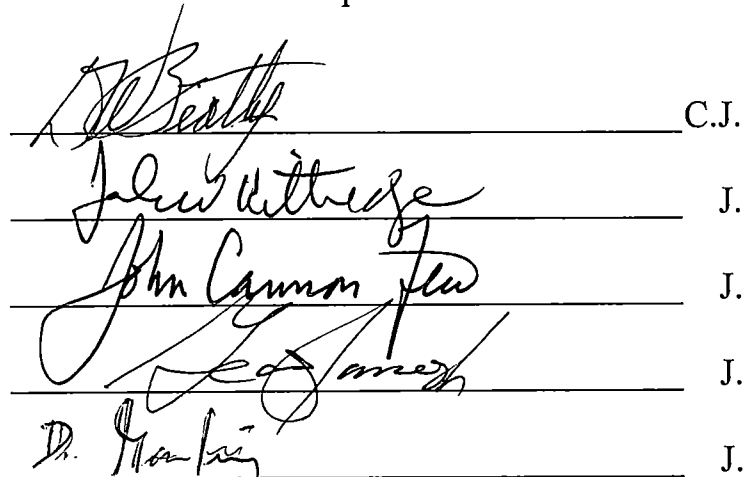 DW Beatty C.J.
John W Kittredge J.
John Cannon Few J.
Geo James J.
D. J.